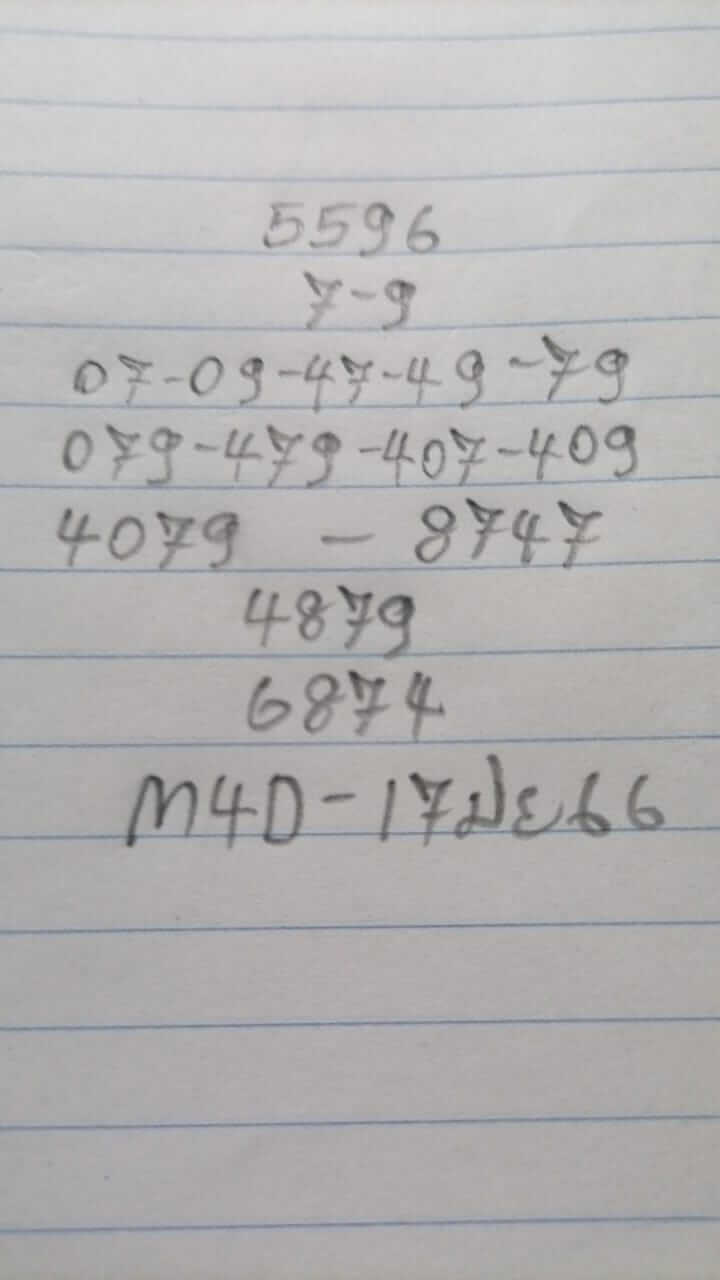 5596
7-9
07-09-47-49-79
079-479-407-409
4079 - 8747
4879
6874
M4D-17มิย66